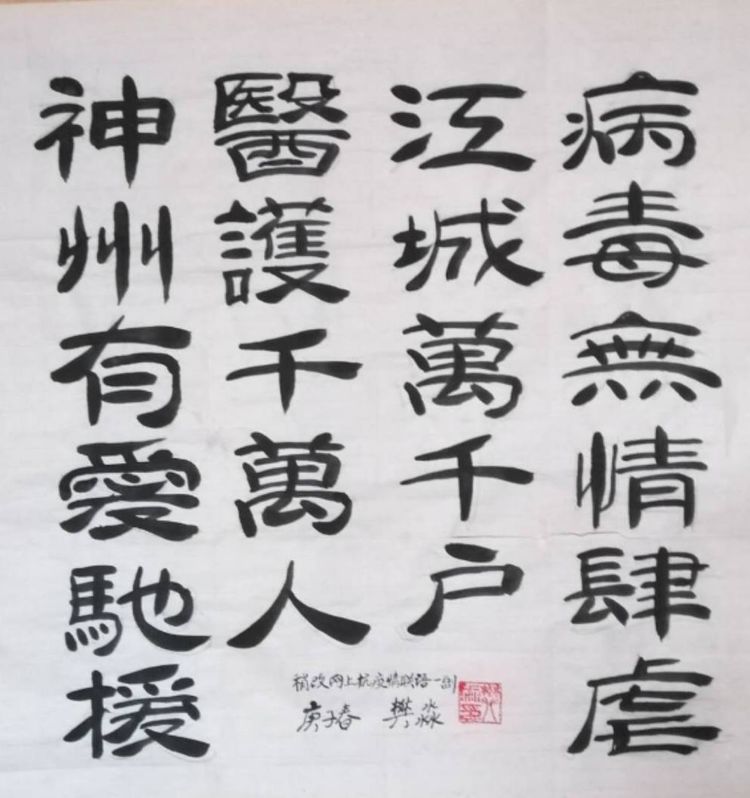 病毒無情肆虐
江城萬千户
醫護千萬人
神州有愛馳援
稍改网上抗疫情联语一则
庚子春 樊淼